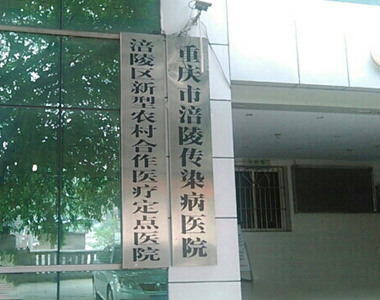 重庆市涪陵传染病医院
涪陵区新型农村合作医疗定点医院